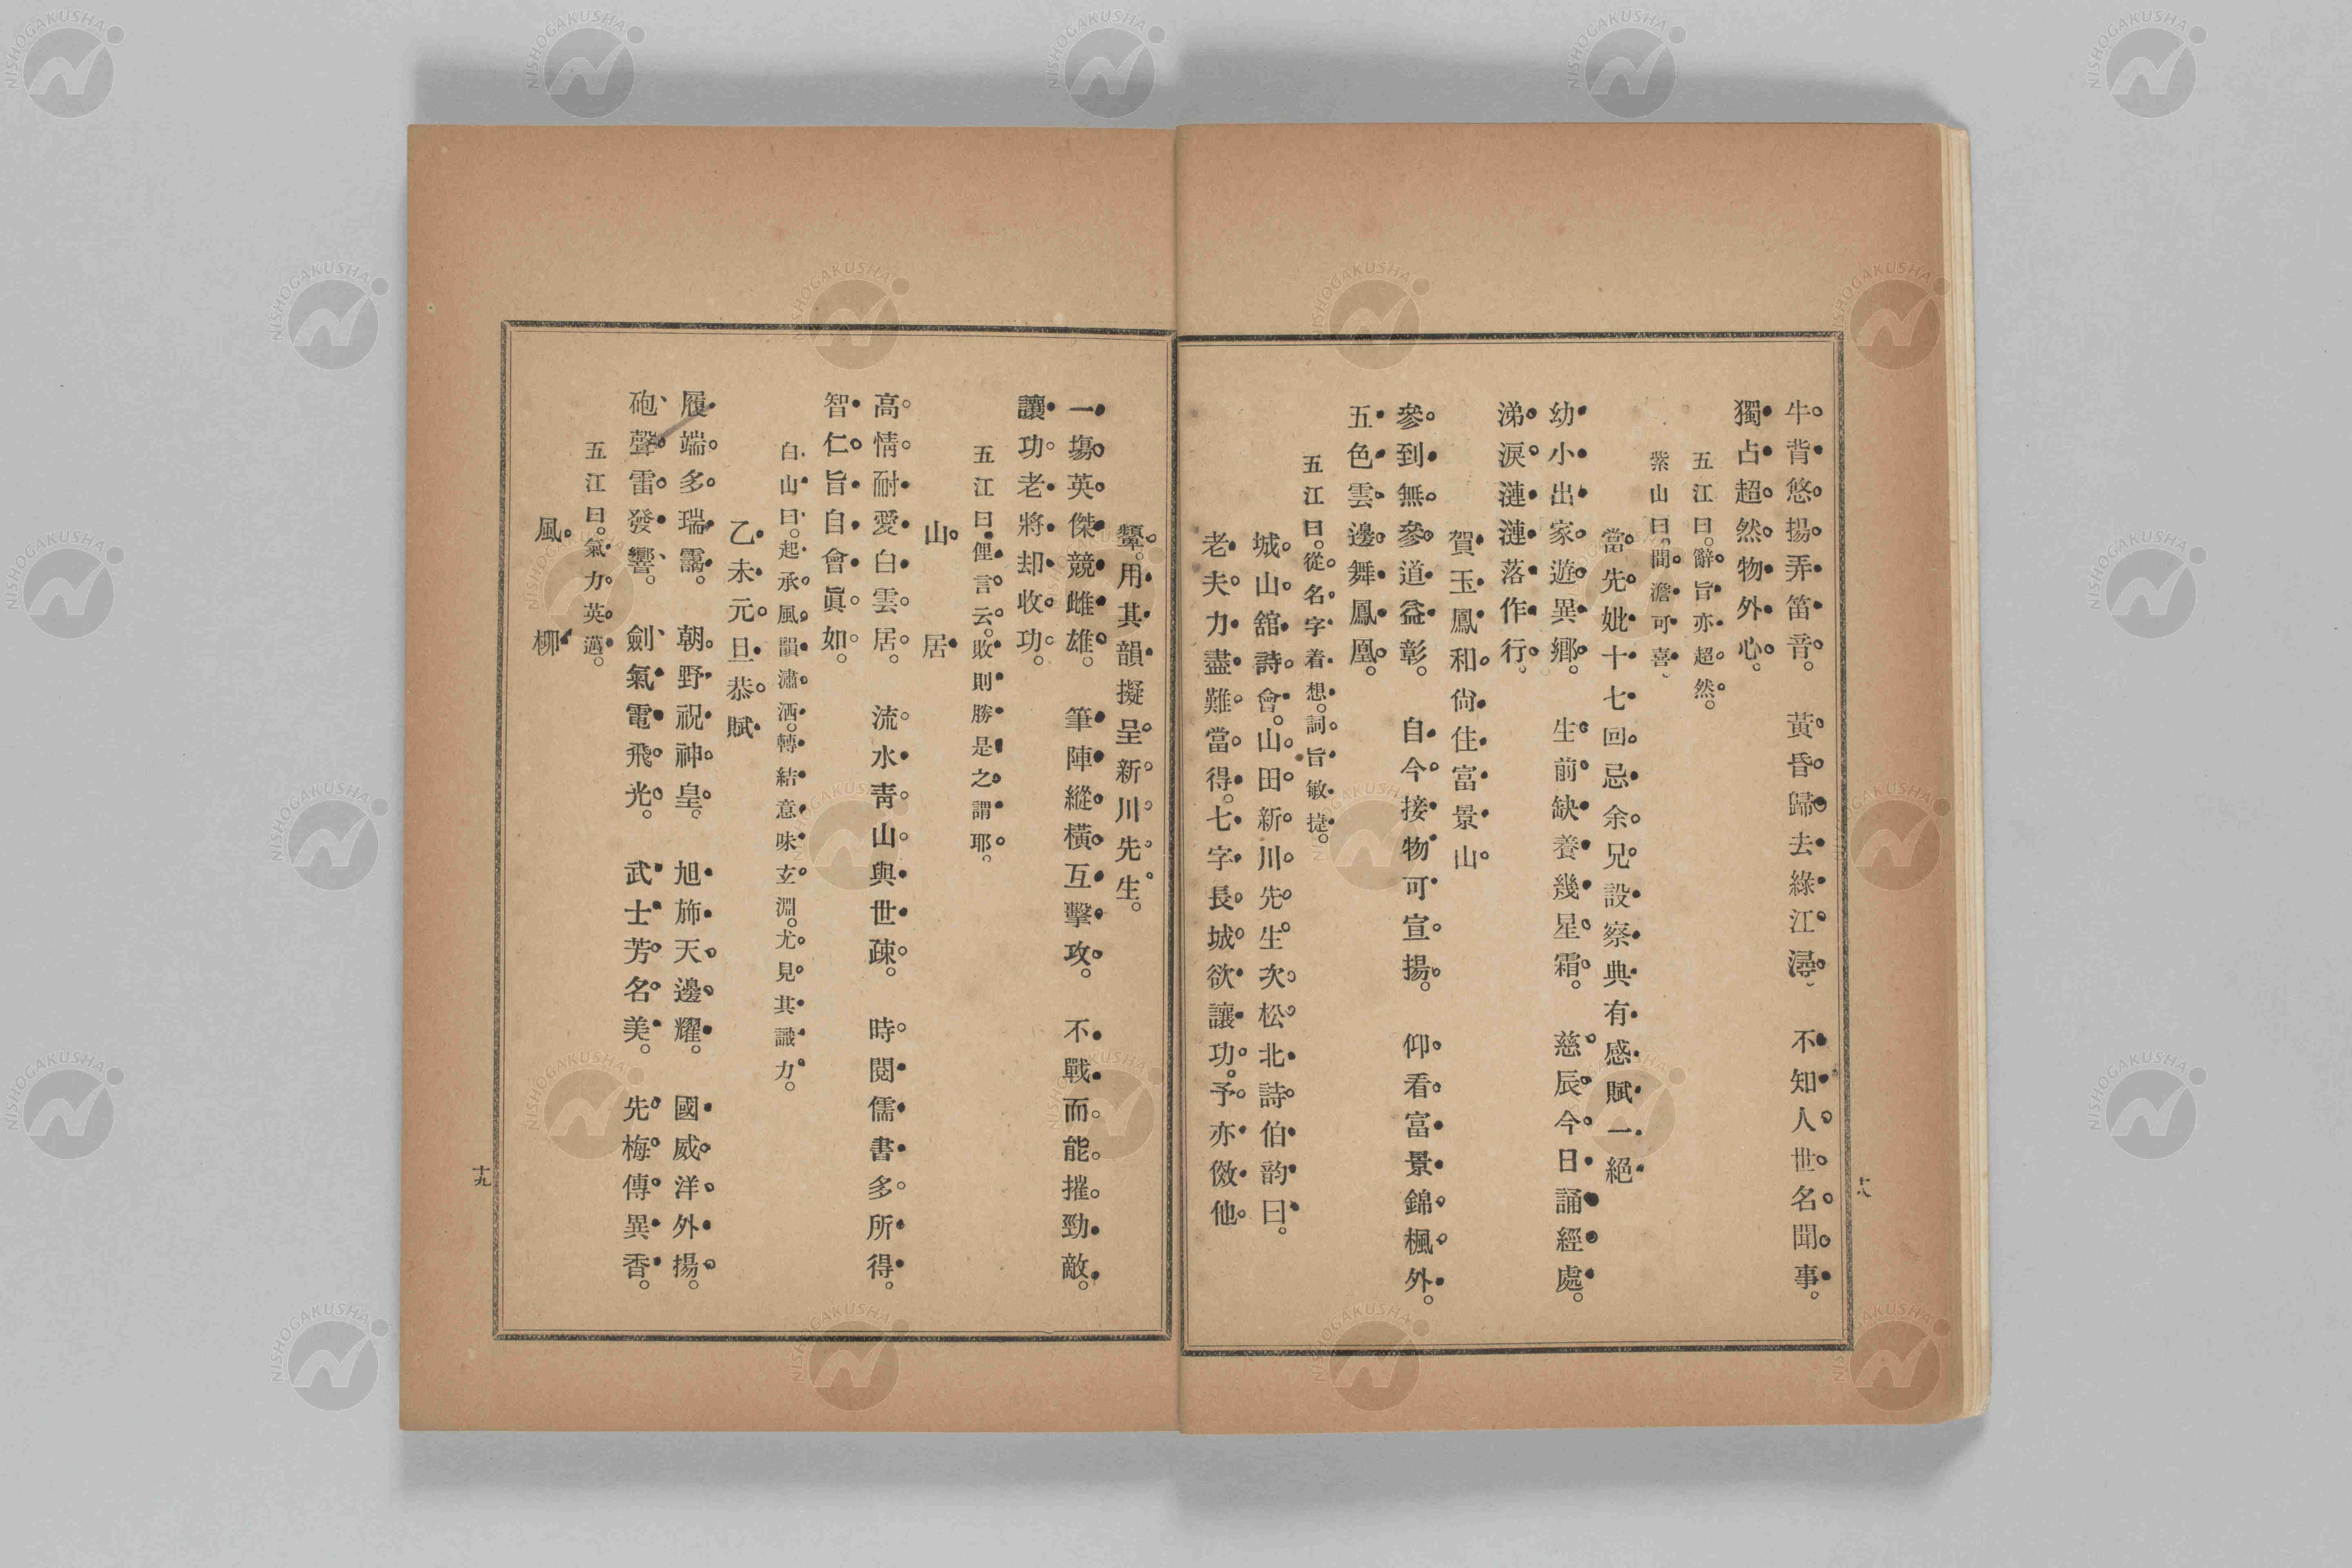 牛背悠揚弄笛音。黃昏歸去綠江潯、不知人世名聞事。
獨占超然物外心。
五江曰。辭旨亦超然。
紫山曰。間澹可喜、
當先妣十七回忌余兄設察典有感賦一絕
幼小出家遊異鄉。生前缺養幾星霜。慈辰今日誦經處。
涕淚漣漣落作行、
賀玉鳳和尙住富景山
參到無參道益彰。自今接物可宣揚。仰看富景錦楓外。
五色雲邊舞鳳凰。
五江曰。從名字着想。詞旨敏捷。
城山舘詩會。山田新川先生次松北詩伯韵曰。
老夫力盡難當得。七字長城欲讓功。予亦傚他
十八
顰。用其韻擬呈新川先生。
一塲英傑競雌雄。筆陣縱橫互擊攻。不戰而能摧勁敵。
讓功老將却收功。
五江曰。俚言云。敗則勝是之謂耶。
山居
高情耐愛白雲居。流水靑山與世疎。時閱儒書多所得。
智仁旨自會眞如。
白山曰。起承風韻瀟洒。轉結意味玄淵。尤見其識力。
乙未元旦恭賦
履端多瑞靄。朝野祝神皇。旭旆天邊耀。國威洋外揚。
砲聲雷發響。劍氣電飛光。武士芳名美。先梅傳異香。
五江曰。氣力英邁。
風柳
十九
NISHOGAKUSHA